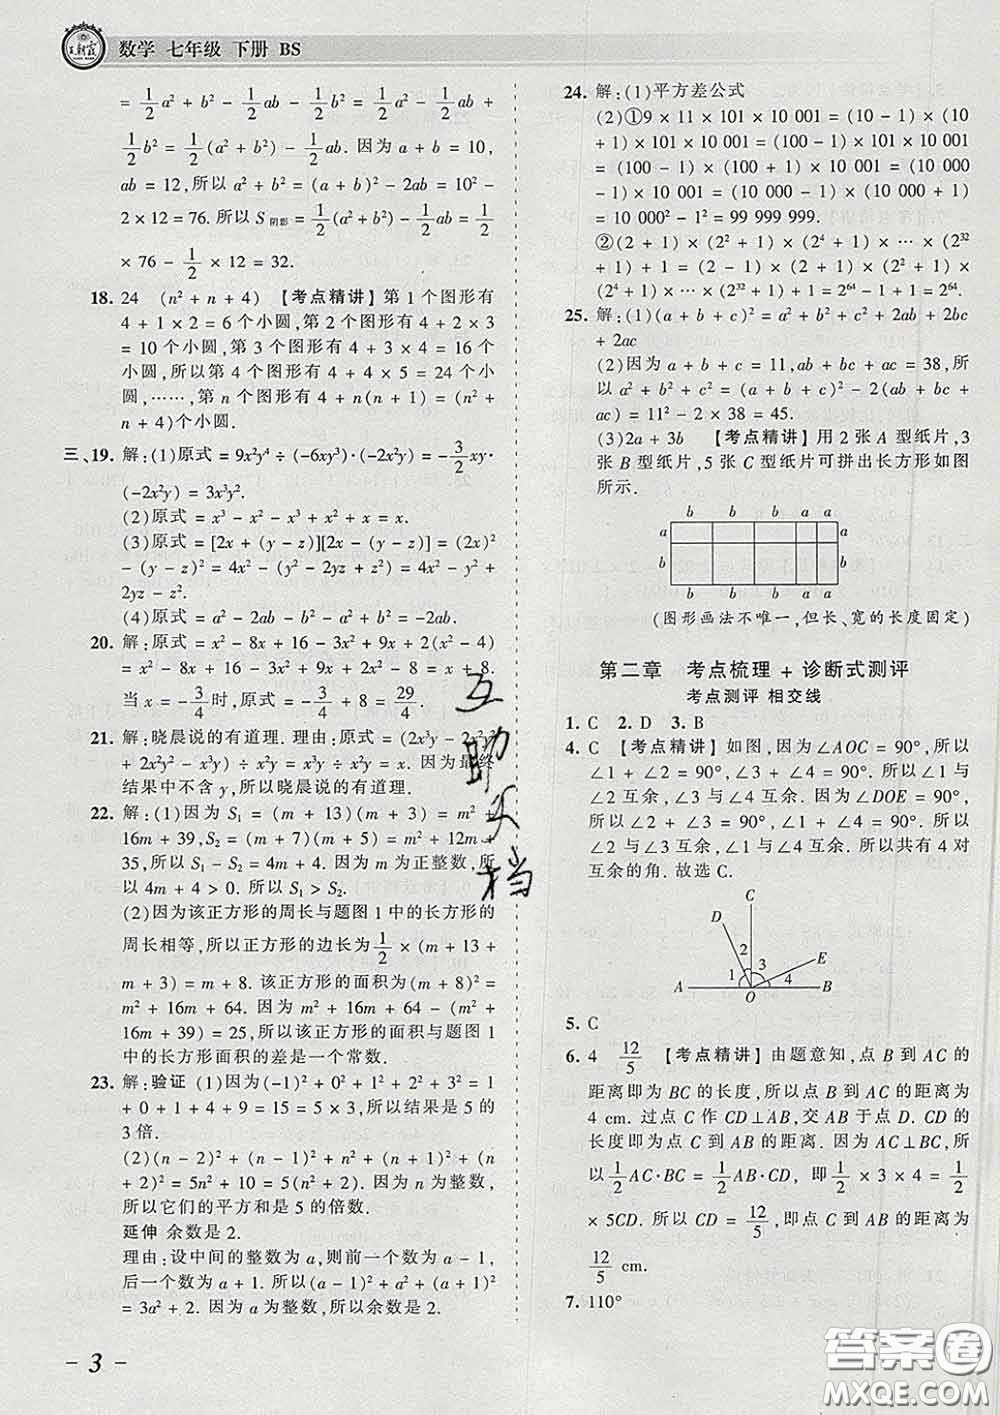 王朝霞
数学 七年级 下册 BS
= 1/2 a² + b² - 1/2 ab - 1/2 b² = 1/2 a² - 1/2 ab +
1/2 b² = 1/2 (a² + b²) - 1/2 ab. 因为 a + b = 10,
ab = 12,所以 a² + b² = (a + b)² - 2ab = 10² -
2 × 12 = 76. 所以 S阴影 = 1/2 (a² + b²) - 1/2 ab = 1/2
× 76 - 1/2 × 12 = 32.
18. 24 (n² + n + 4) 【考点精讲】第 1 个图形有
4 + 1 × 2 = 6 个小圆,第 2 个图形有 4 + 2 × 3
= 10 个小圆,第 3 个图形有 4 + 3 × 4 = 16 个
小圆,所以第 4 个图形有 4 + 4 × 5 = 24 个小
圆,……,第 n 个图形有 4 + n(n + 1) = (n² +
n + 4)个小圆.
三、19. 解:(1)原式 = 9x²y⁴ ÷ (-6xy³)·(-2x²y) = -3/2 xy·
(-2x²y) = 3x³y².
(2)原式 = x³ - x² - x³ + x² + x = x.
(3)原式 = [2x + (y - z)][2x - (y - z)] = (2x)²
- (y - z)² = 4x² - (y² - 2yz + z²) = 4x² - y² +
2yz - z².
(4)原式 = a² - 2ab - b² - a² + b² = -2ab.
20. 解:原式 = x² - 8x + 16 - 3x² + 9x + 2(x² - 4)
= x² - 8x + 16 - 3x² + 9x + 2x² - 8 = x + 8.
当 x = -3/4 时,原式 = -3/4 + 8 = 29/4.
21. 解:晓晨说的有道理. 理由:原式 = (2x³y - 2x²y²
+ 2x²y² - x³y) ÷ x²y = x³y ÷ x²y = x. 因为最终
结果中不含 y,所以晓晨说的有道理.
22. 解:(1)因为 S₁ = (m + 13)(m + 3) = m² +
16m + 39,S₂ = (m + 7)(m + 5) = m² + 12m +
35,所以 S₁ - S₂ = 4m + 4. 因为 m 为正整数,所
以 4m + 4 > 0. 所以 S₁ > S₂.
(2)因为该正方形的周长与题图 1 中的长方形的
周长相等,所以该正方形的边长为 1/2 × (m + 13 +
m + 3) = m + 8. 该正方形的面积为(m + 8)² =
m² + 16m + 64. 因为 m² + 16m + 64 - (m² +
16m + 39) = 25,所以该正方形的面积与题图 1
中的长方形面积的差是一个常数.
23. 解:验证 (1)因为(-1)² + 0² + 1² + 2² + 3² = 1
+ 0 + 1 + 4 + 9 = 15 = 5 × 3,所以结果是 5 的
3 倍.
(2)(n - 2)² + (n - 1)² + n² + (n + 1)² + (n +
2)² = 5n² + 10 = 5(n² + 2). 因为 n 为整数,
所以它们的平方和是 5 的倍数.
延伸 余数是 2.
理由:设中间的整数为 a,则前一个数为 a - 1,
后一个数为 a + 1. 所以(a - 1)² + a² + (a + 1)²
= 3a² + 2. 因为 a 为整数,所以余数是 2.
- 3 -
24. 解:(1)平方差公式
(2)①9 × 11 × 101 × 10 001 = (10 - 1) × (10
+ 1) × 101 × 10 001 = (100 - 1) × 101 × 10 001
= (100 - 1) × (100 + 1) × 10 001 = (10 000
- 1) × 10 001 = (10 000 - 1) × (10 000 + 1)
= 10 000² - 1² = 99 999 999.
②(2 + 1) × (2² + 1) × (2⁴ + 1) × … × (2³²
+ 1) + 1 = (2 - 1) × (2 + 1) × (2² + 1) ×
(2⁴ + 1) × … × (2³² + 1) + 1 = 2⁶⁴ - 1 + 1 = 2⁶⁴.
25. 解:(1)(a + b + c)² = a² + b² + c² + 2ab + 2bc
+ 2ac
(2)因为 a + b + c = 11,ab + bc + ac = 38,所
以 a² + b² + c² = (a + b + c)² - 2(ab + bc +
ac) = 11² - 2 × 38 = 45.
(3)2a + 3b 【考点精讲】用 2 张 A 型纸片,3
张 B 型纸片,5 张 C 型纸片可拼出长方形如图
所示.
b b b a a
a a
b b
b b b a a
(图形画法不唯一,但长、宽的长度固定)
第二章 考点梳理 + 诊断式测评
考点测评 相交线
1. C 2. D 3. B
4. C 【考点精讲】如图,因为∠AOC = 90°,所以
∠1 + ∠2 = 90°,∠3 + ∠4 = 90°. 所以∠1 与
∠2 互余,∠3 与∠4 互余. 因为∠DOE = 90°,
所以∠2 + ∠3 = 90°,∠1 + ∠4 = 90°. 所
以∠2 与∠3 互余,∠1 与∠4 互余. 所以共有 4 对
互余的角. 故选 C.
C
D
E
2
1 3
4
A O B
5. C
6. 4 12/5 【考点精讲】由题意知,点 B 到 AC 的
距离即为 BC 的长度,所以点 B 到 AC 的距离为
4 cm. 过点 C 作 CD⊥AB,交 AB 于点 D. CD 的
长度即为点 C 到 AB 的距离. 因为 AC⊥BC,所
以 1/2 AC·BC = 1/2 AB·CD, 即 1/2 × 3 × 4 = 1/2
× 5CD. 所以 CD = 12/5,即点 C 到 AB 的距离为
12/5 cm.
7. 110°
互助文档
答案圈
MXQE.COM